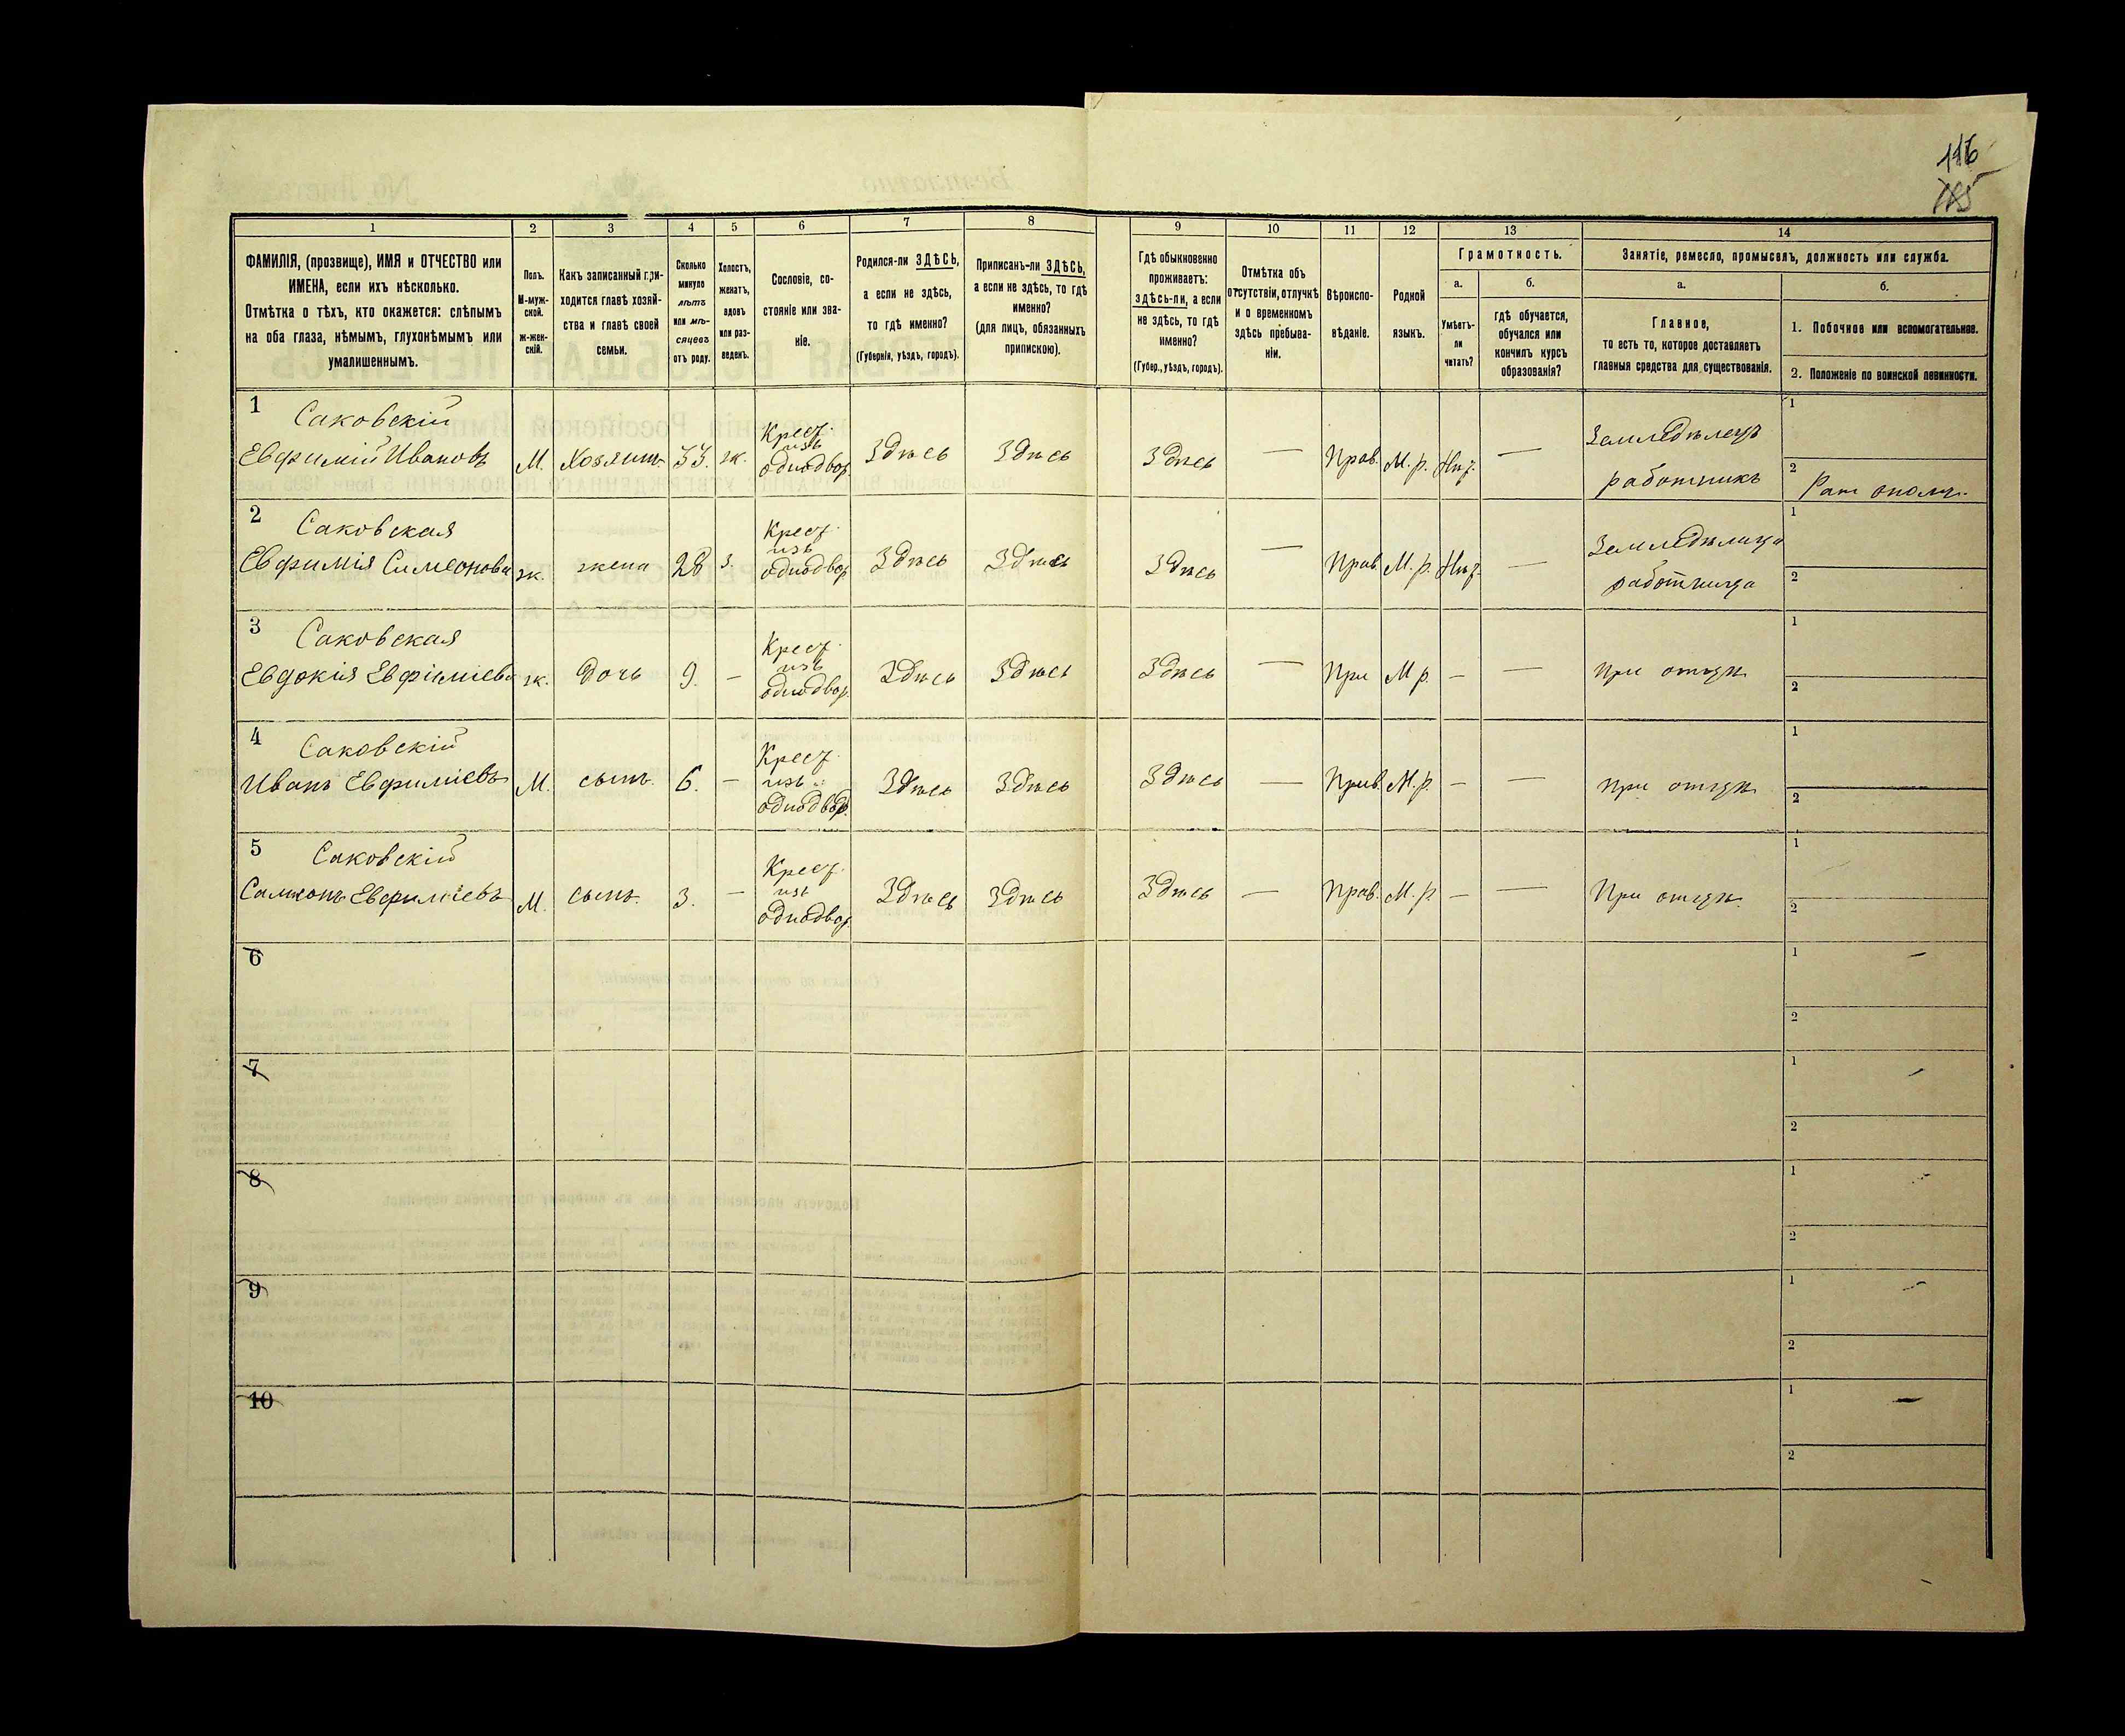 116
185
1
2
3
4
5
6
7
8
9
10
11
12
13
14
ФАМИЛІЯ, (прозвище), ИМЯ и ОТЧЕСТВО или
ИМЕНА, если ихъ нѣсколько.
Отмѣтка о тѣхъ, кто окажется: слѣпымъ
на оба глаза, нѣмымъ, глухонѣмымъ или
умалишеннымъ.
Полъ.
М-муж-
ской.
ж-жен-
скій.
Какъ записанный при-
ходится главѣ хозяй-
ства и главѣ своей
семьи.
Сколько
минуло
лѣтъ
или мѣ-
сяцевъ
отъ роду.
Холостъ,
женатъ,
вдовъ
или раз-
веденъ.
Сословіе, со-
стояніе или зва-
ніе.
Родился-ли ЗДѢСЬ,
а если не здѣсь,
то гдѣ именно?
(Губернія, уѣздъ, городъ).
Приписанъ-ли ЗДѢСЬ,
а если не здѣсь, то гдѣ
именно?
(для лицъ, обязанныхъ
припискою).
Гдѣ обыкновенно
проживаетъ:
здѣсь-ли, а если
не здѣсь, то гдѣ
именно?
(Губер., уѣздъ, городъ).
Отмѣтка объ
отсутствіи, отлучкѣ
и о временномъ
здѣсь пребыва-
ніи.
Вѣроиспо-
вѣданіе.
Родной
языкъ.
Грамотность.
а.
Умѣетъ-
ли
читать?
б.
гдѣ обучается,
обучался или
кончилъ курсъ
образованія?
Занятіе, ремесло, промыселъ, должность или служба.
а.
Главное,
то есть то, которое доставляетъ
главныя средства для существованія.
б.
1. Побочное или вспомогательное.
2. Положеніе по воинской повинности.
1
Саковскій
Евфимій Ивановъ
М.
Хозяинъ
33.
ж.
Крест.
изъ
однодвор.
Здѣсь
Здѣсь
Здѣсь
—
Прав.
М. р.
Нѣт.
—
Земледѣлецъ
работникъ
1
2
Рат ополч.
2
Саковская
Евфимія Симеонова
ж.
жена
28
з.
Крест.
изъ
однодвор.
Здѣсь
Здѣсь
Здѣсь
—
Прав.
М. р.
Нѣт.
—
Земледѣлица
работница
1
2
3
Саковская
Евдокія Евфиміева
ж.
дочь
9.
—
Крест.
изъ
однодвор.
Здѣсь
Здѣсь
Здѣсь
—
При
М р.
—
—
При отцѣ
1
2
4
Саковскій
Иванъ Евфиміевъ
М.
сынъ.
6.
—
Крест.
изъ
однодвор.
Здѣсь
Здѣсь
Здѣсь
—
Прав.
М. р.
—
—
При отцѣ
1
2
5
Саковскій
Самсонъ Евфиміевъ
М.
сынъ.
3.
—
Крест.
изъ
однодвор.
Здѣсь
Здѣсь
Здѣсь
—
Прав.
М. р.
—
—
При отцѣ.
1
2
6
1
—
2
7
1
—
2
8
1
—
2
9
1
—
2
10
1
—
2